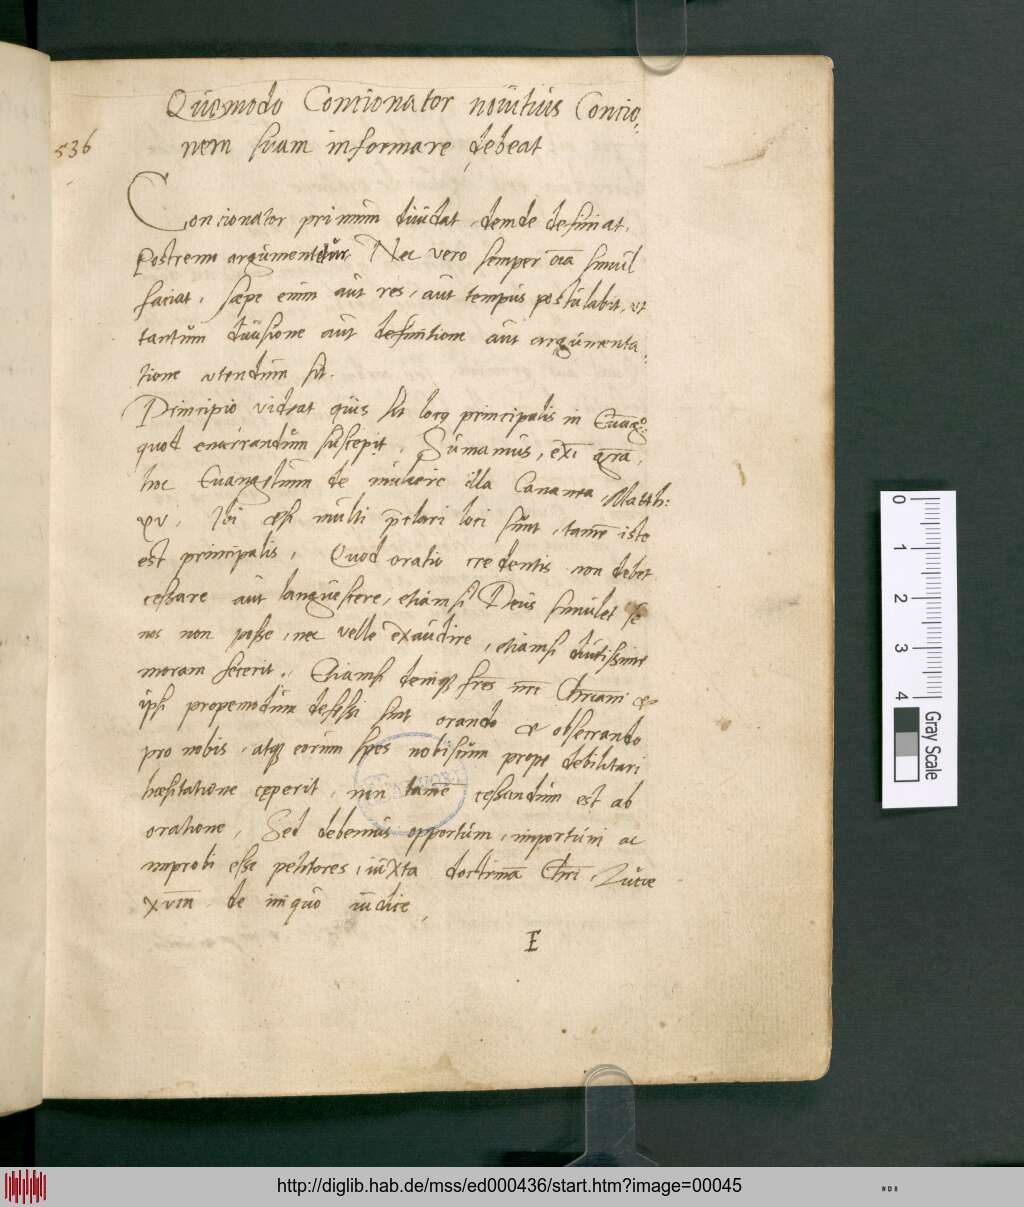 Quomodo Concionator novitius Concio,
536
nem suam informare debeat
Concionator primum dividat, deinde definiat,
Postremo argumentetur Nec vero semper oīa simul
faciat, sæpe enim aut res, aut tempus postulabit, ut
tantum divisione aut definitione aut argumenta,
tione utendum sit.
Principio videat quis sit locq principalis in Evāg:
quod enarrandum suscepit, Sumamus, exī grā,
hoc Evangelium de muliere illa Cananea Matth:
xv, Ibi etsi multi p̄clari loci sunt, tamē iste
est principalis, Quod oratio credentis non debet
cessare aut languescere, etiamsi Deus simulet se
nos non posse, nec velle exaudire, etiamsi diutissime
moram fecerit, Etiamsi deniqȝ fres nr̄i Chr̄iani &
ipsi propemodum defessi sint orando & obserrando
pro nobis, atqȝ eorum spes nobiscum prope debilitari
hæsitatione cęperit, non tamē cessandum est ab
oratione, Sed debemus opportuni, importuni ac
improbi esse petitores, iuxta doctrinā Chr̄i, Lucæ
xviii, de iniquo iudice,
E
0
1
2
3
4
Gray Scale
http://diglib.hab.de/mss/ed000436/start.htm?image=00045